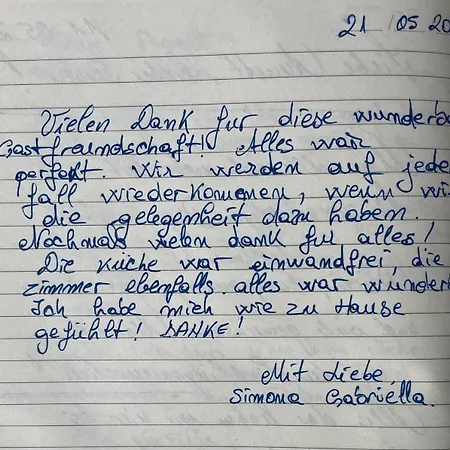 21 /05 20
Vielen Dank fur diese wunderba
Gastfreundschaft! Alles war
perfekt. Wir werden auf jede
fall wiederkommen, wenn wi
die gelegenheit dazu haben.
Nochmals vielen dank fur alles!
Die Küche war einwandfrei, die
zimmer ebenfalls. alles war wunderb
Ich habe mich wie zu Hause
gefühlt! DANKE!
Mit Liebe
Simona Gabriella.